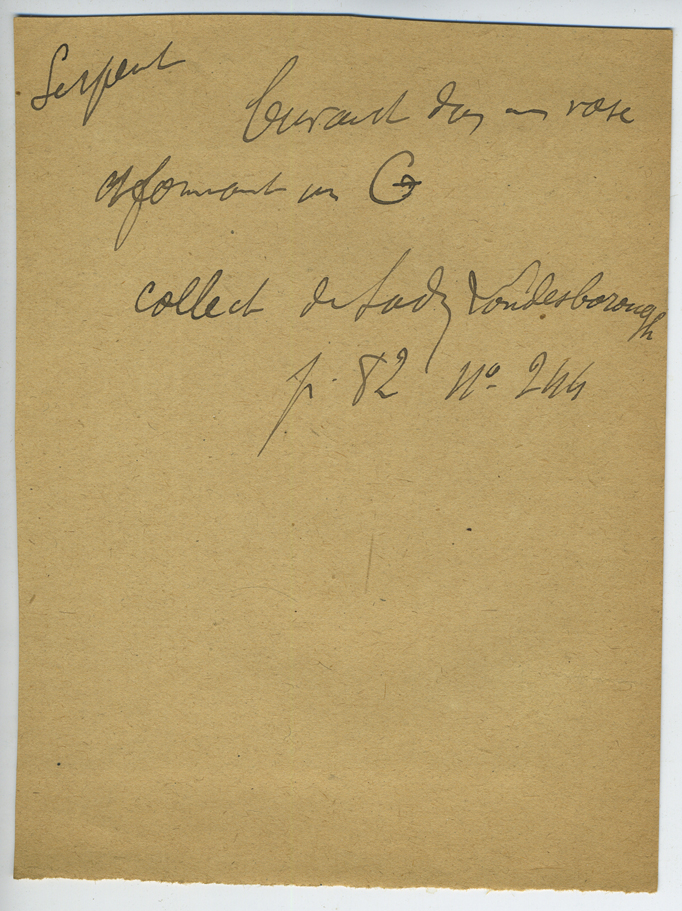 Serpent
buvant dans un vase
et formant un G
collect de Lady Londesborough
p. 82 No. 244